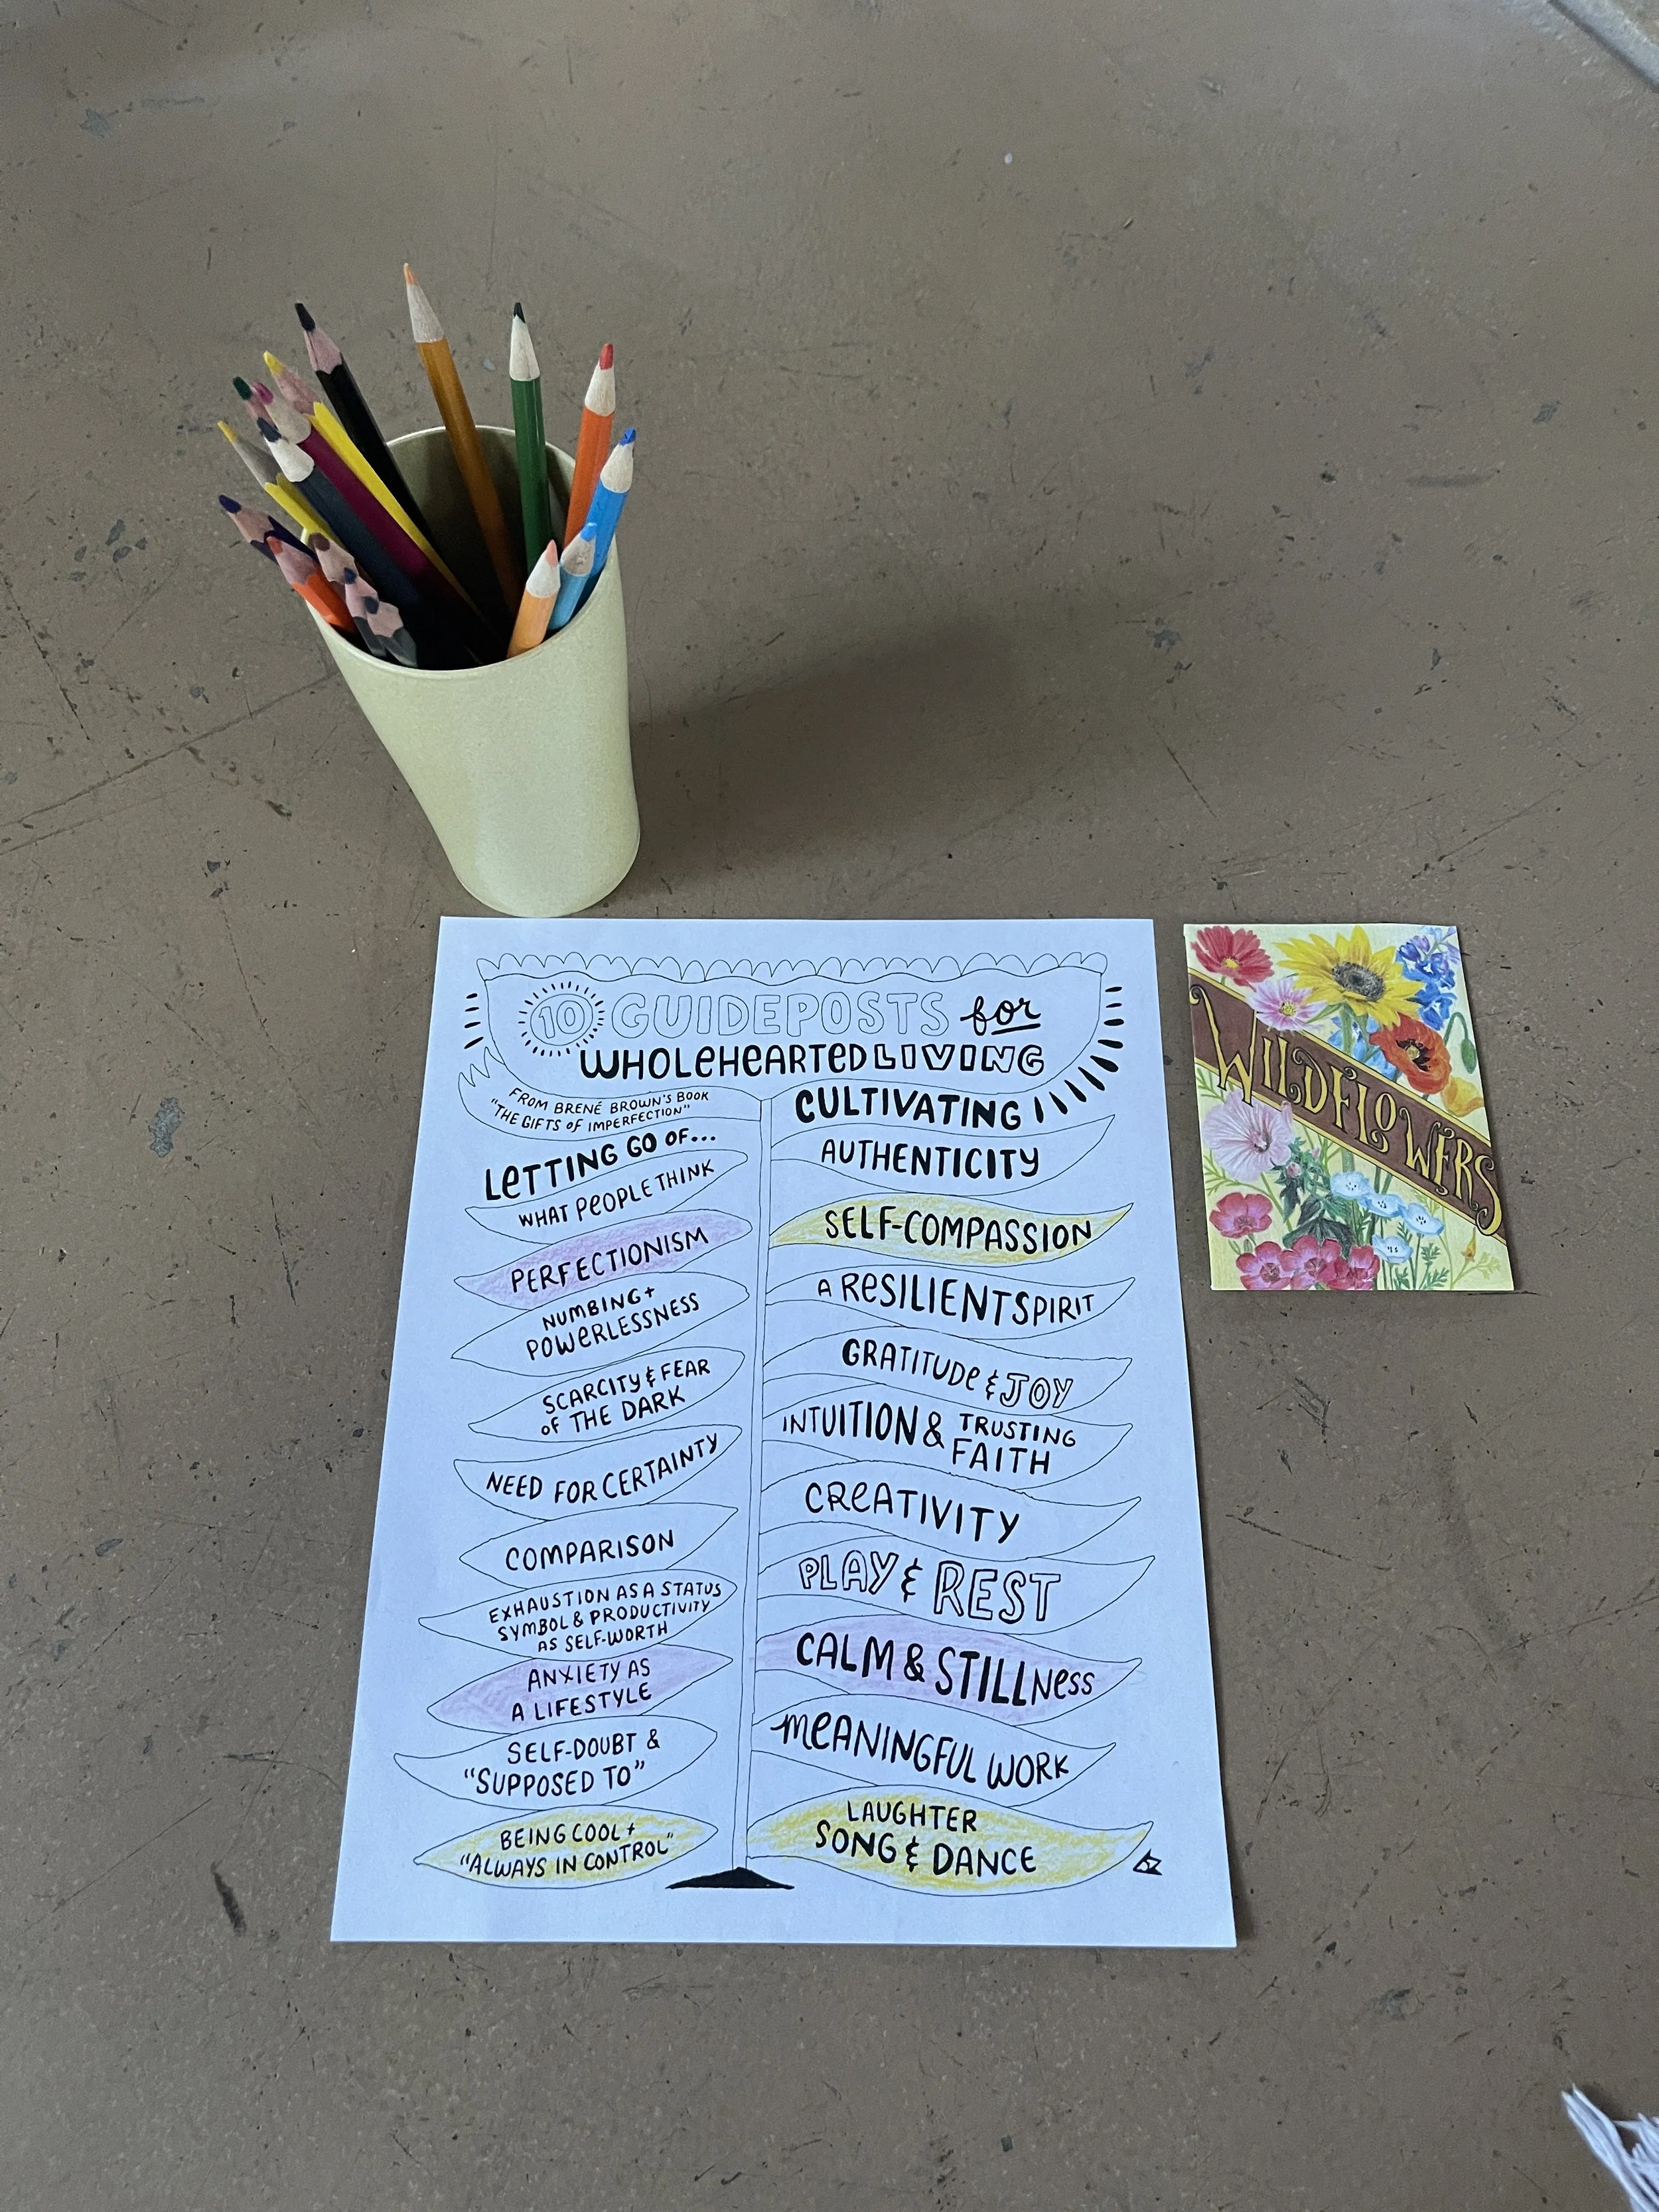 10 GUIDEPOSTS for
WHOLEHEARTED LIVING
FROM BRENÉ BROWN'S BOOK
"THE GIFTS OF IMPERFECTION"
LETTING GO OF...
WHAT PEOPLE THINK
PERFECTIONISM
NUMBING +
POWERLESSNESS
SCARCITY & FEAR
OF THE DARK
NEED FOR CERTAINTY
COMPARISON
EXHAUSTION AS A STATUS
SYMBOL & PRODUCTIVITY
AS SELF-WORTH
ANXIETY AS
A LIFESTYLE
SELF-DOUBT &
"SUPPOSED TO"
BEING COOL +
"ALWAYS IN CONTROL"
CULTIVATING
AUTHENTICITY
SELF-COMPASSION
A RESILIENT SPIRIT
GRATITUDE & JOY
INTUITION & TRUSTING
FAITH
CREATIVITY
PLAY & REST
CALM & STILLNESS
MEANINGFUL WORK
LAUGHTER
SONG & DANCE
WILDFLOWERS